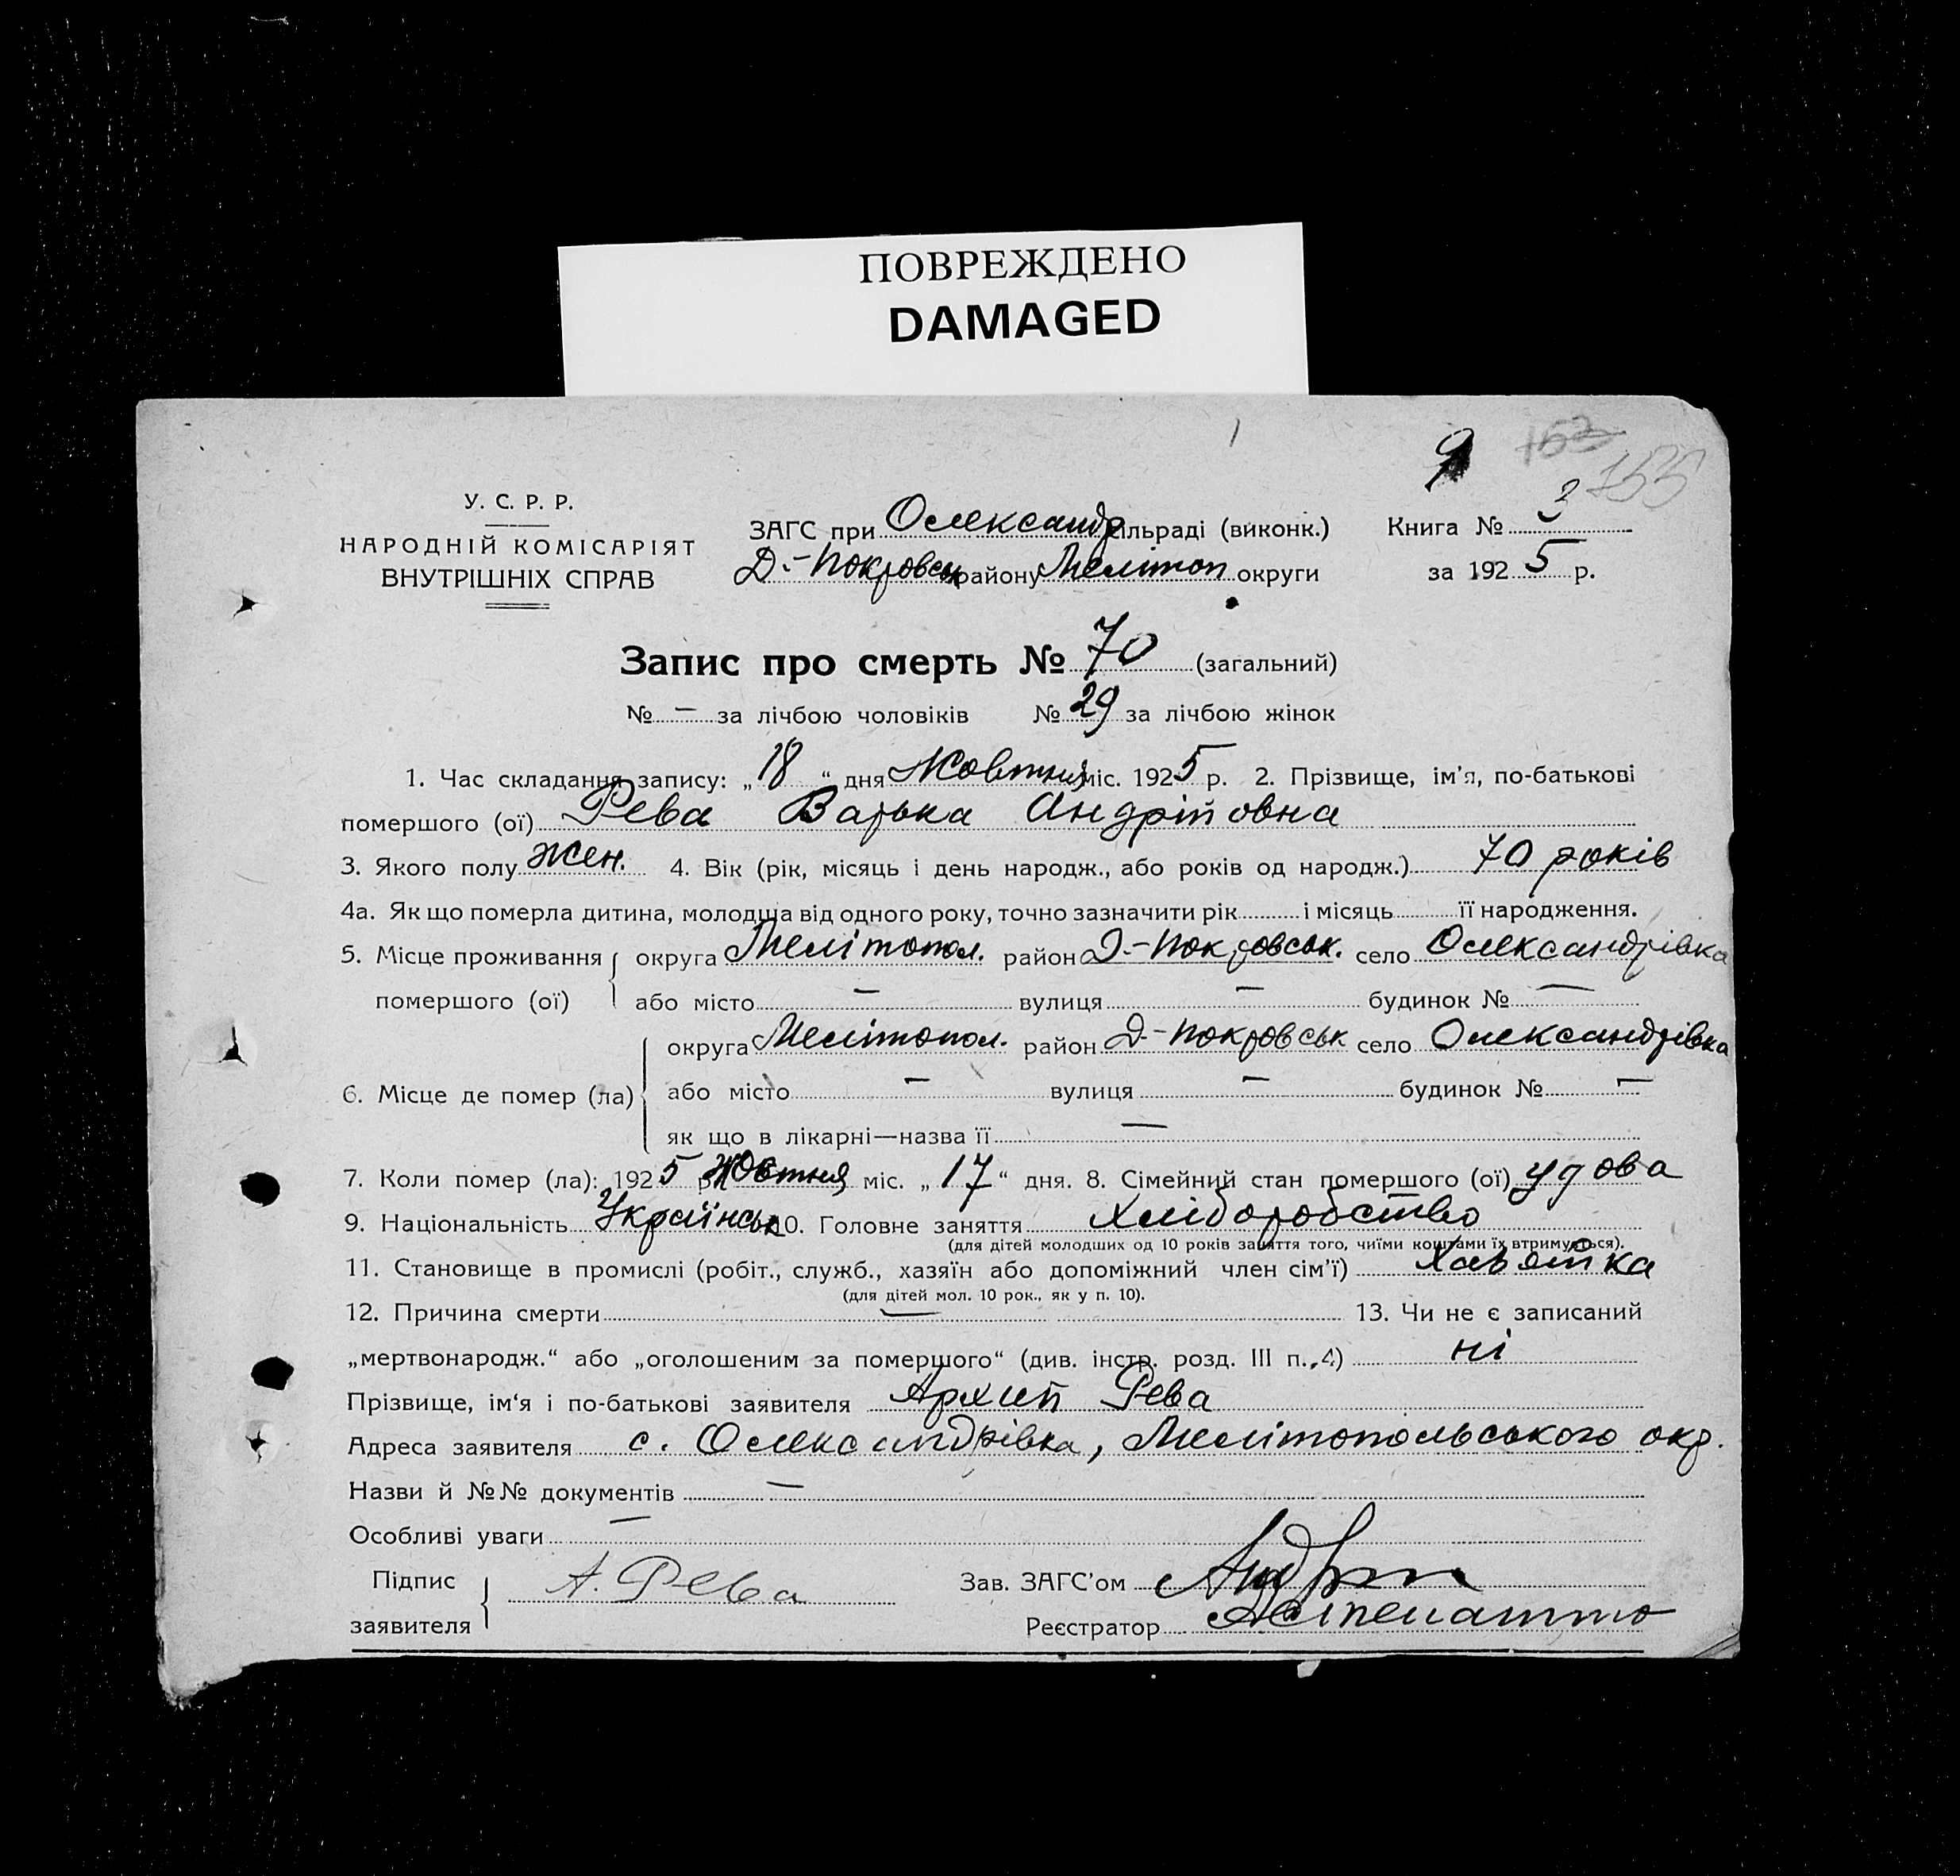 ПОВРЕЖДЕНО
DAMAGED
9 153 155
У. С. Р. Р.
НАРОДНІЙ КОМІСАРІЯТ
ВНУТРІШНІХ СПРАВ
ЗАГС при Олександр сільраді (виконк.) Книга № 3
Д.-Покровськ району Мелітоп округи за 1925 р.
Запис про смерть № 70 (загальний)
№ — за лічбою чоловіків № 29 за лічбою жінок
1. Час складання запису: „18“ дня Жовтня міс. 1925 р. 2. Прізвище, ім'я, по-батькові
помершого (ої) Рева Варька Андрійовна
3. Якого полу жен. 4. Вік (рік, місяць і день народж., або років од народж.) 70 років
4а. Як що померла дитина, молодща від одного року, точно зазначити рік і місяць її народження.
5. Місце проживання помершого (ої) округа Мелітопол. район Д.-Покровськ. село Олександрівка
або місто — вулиця — будинок № —
6. Місце де помер (ла) округа Мелітопол. район Д-Покровськ село Олександрівка
або місто — вулиця — будинок № —
як що в лікарні—назва її —
7. Коли помер (ла): 1925 р. Жовтня міс. „17“ дня. 8. Сімейний стан помершого (ої) удова
9. Національність Українськ 10. Головне заняття Хліборобство
(для дітей молодших од 10 років заняття того, чиїми коштами їх втримується).
11. Становище в промислі (робіт., служб., хазяїн або допоміжний член сім'ї) Хазяйка
(для дітей мол. 10 рок., як у п. 10).
12. Причина смерти — 13. Чи не є записаний
„мертвонародж.“ або „оголошеним за помершого“ (див. інстр. розд. III п. 4) ні
Прізвище, ім'я і по-батькові заявителя Архип Рева
Адреса заявителя с. Олександрівка, Мелітопольського окр.
Назви й №№ документів —
Особливі уваги —
Підпис заявителя А. Рева Зав. ЗАГС'ом
Реєстратор